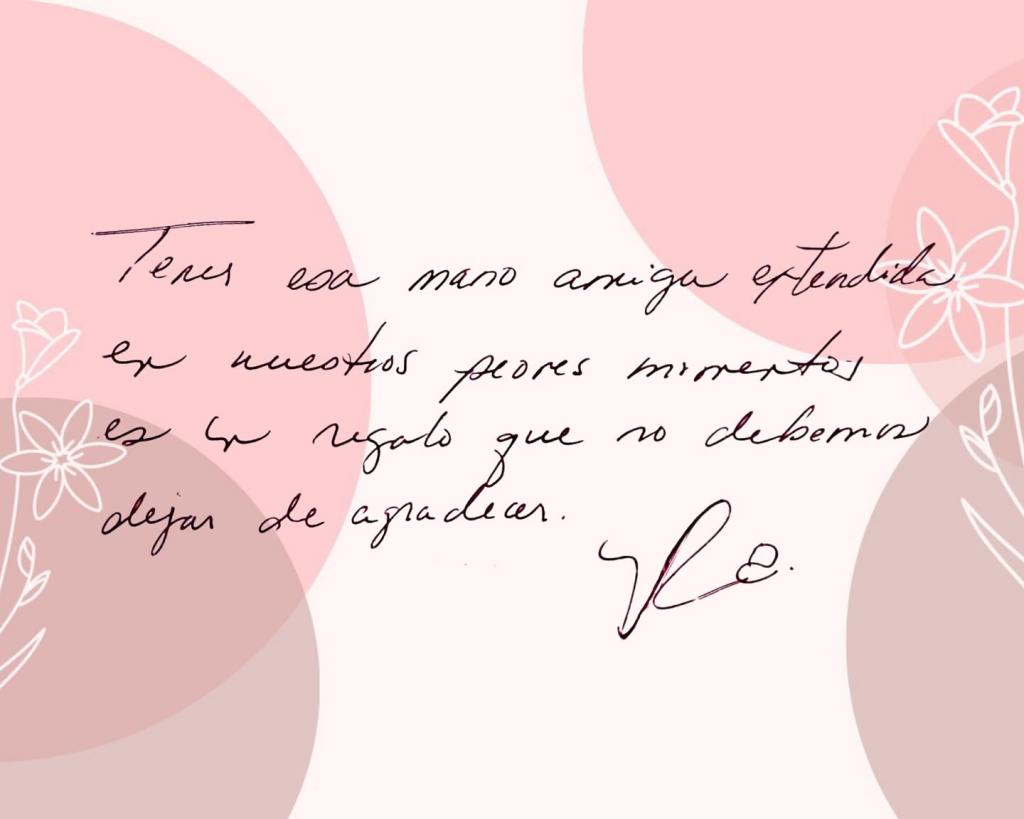 Tener esa mano amiga extendida
en nuestros peores momentos
es un regalo que no debemos
dejar de agradecer.